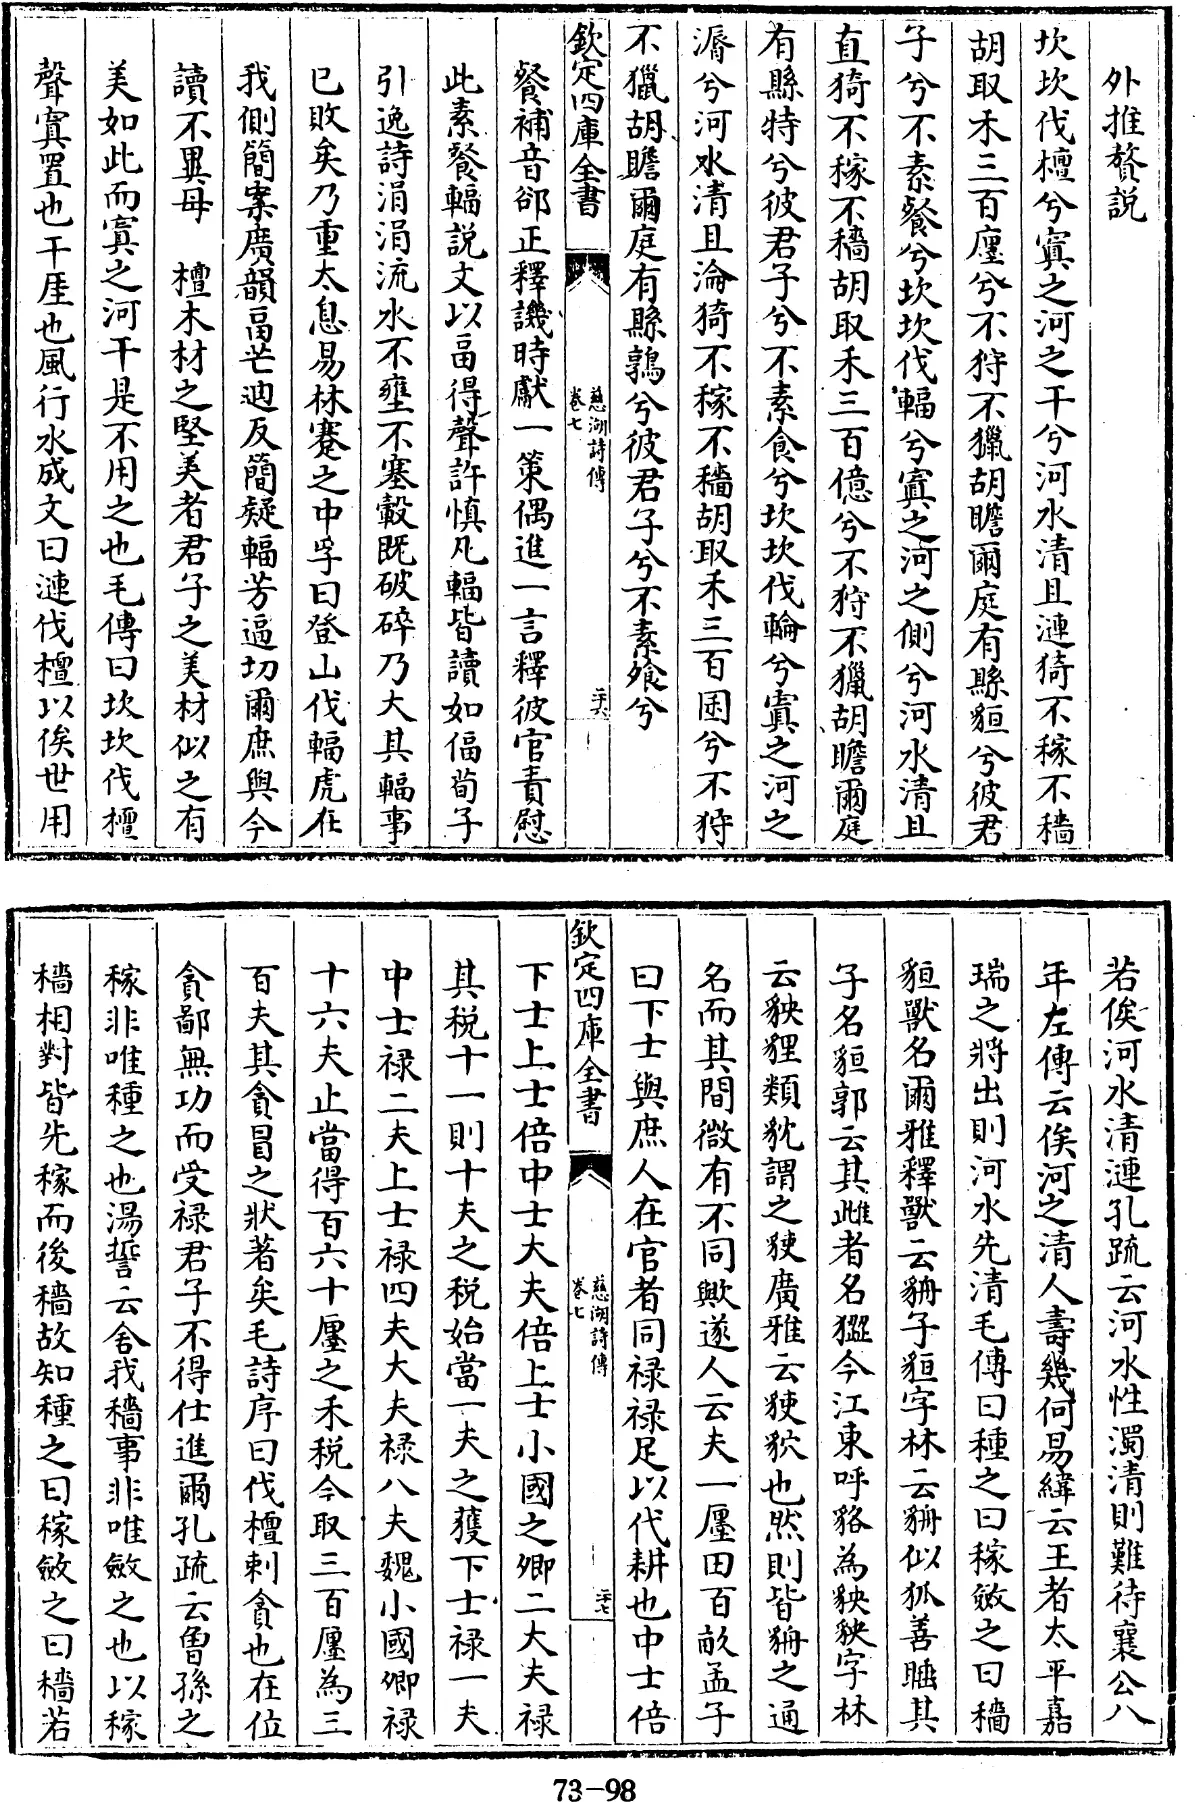 外推贅説
坎坎伐檀兮寘之河之干兮河水清且漣猗不稼不穡
胡取禾三百廛兮不狩不獵胡瞻爾庭有縣貆兮彼君
子兮不素餐兮坎坎伐輻兮寘之河之側兮河水清且
直猗不稼不穡胡取禾三百億兮不狩不獵胡瞻爾庭
有縣特兮彼君子兮不素食兮坎坎伐輪兮寘之河之
漘兮河水清且淪猗不稼不穡胡取禾三百囷兮不狩
不獵胡瞻爾庭有縣鶉兮彼君子兮不素飧兮
欽定四庫全書
慈湖詩傳
卷七
二十六
餐補音郤正釋譏時獻一策偶進一言釋彼官責慰
此素餐輻説文以畐得聲許慎凡輻皆讀如偪荀子
引逸詩涓涓流水不壅不塞轂既破碎乃大其輻事
已敗矣乃重太息易林蹇之中孚曰登山伐輻虎在
我側簡案廣韻畐芒逈反簡疑輻芳逼切爾庶與今
讀不異毋　檀木材之堅美者君子之美材似之有
美如此而寘之河干是不用之也毛傳曰坎坎伐檀
聲寘置也干厓也風行水成文曰漣伐檀以俟世用
若俟河水清漣孔疏云河水性濁清則難待襄公八
年左傳云俟河之清人壽幾何易緯云王者太平嘉
瑞之將出則河水先清毛傳曰種之曰稼斂之曰穡
貆獸名爾雅釋獸云貈子貆字林云貈似狐善睡其
子名貆郭云其雌者名㺠今江東呼貉為䝟䝟字林
云䝟貍類犺謂之㹶廣雅云㹶猷也然則皆貈之通
名而其間微有不同歟遂人云夫一廛田百畝孟子
曰下士與庶人在官者同禄禄足以代耕也中士倍
欽定四庫全書
慈湖詩傳
卷七
二十七
下士上士倍中士大夫倍上士小國之卿二大夫禄
其税十一則十夫之税始當一夫之獲下士禄一夫
中士禄二夫上士禄四夫大夫禄八夫魏小國卿禄
十六夫止當得百六十廛之禾税今取三百廛為三
百夫其貪冒之狀著矣毛詩序曰伐檀刺貪也在位
貪鄙無功而受禄君子不得仕進爾孔疏云魯孫之
稼非唯種之也湯誓云舍我穡事非唯斂之也以稼
穡相對皆先稼而後穡故知種之曰稼斂之曰穡若
73-98